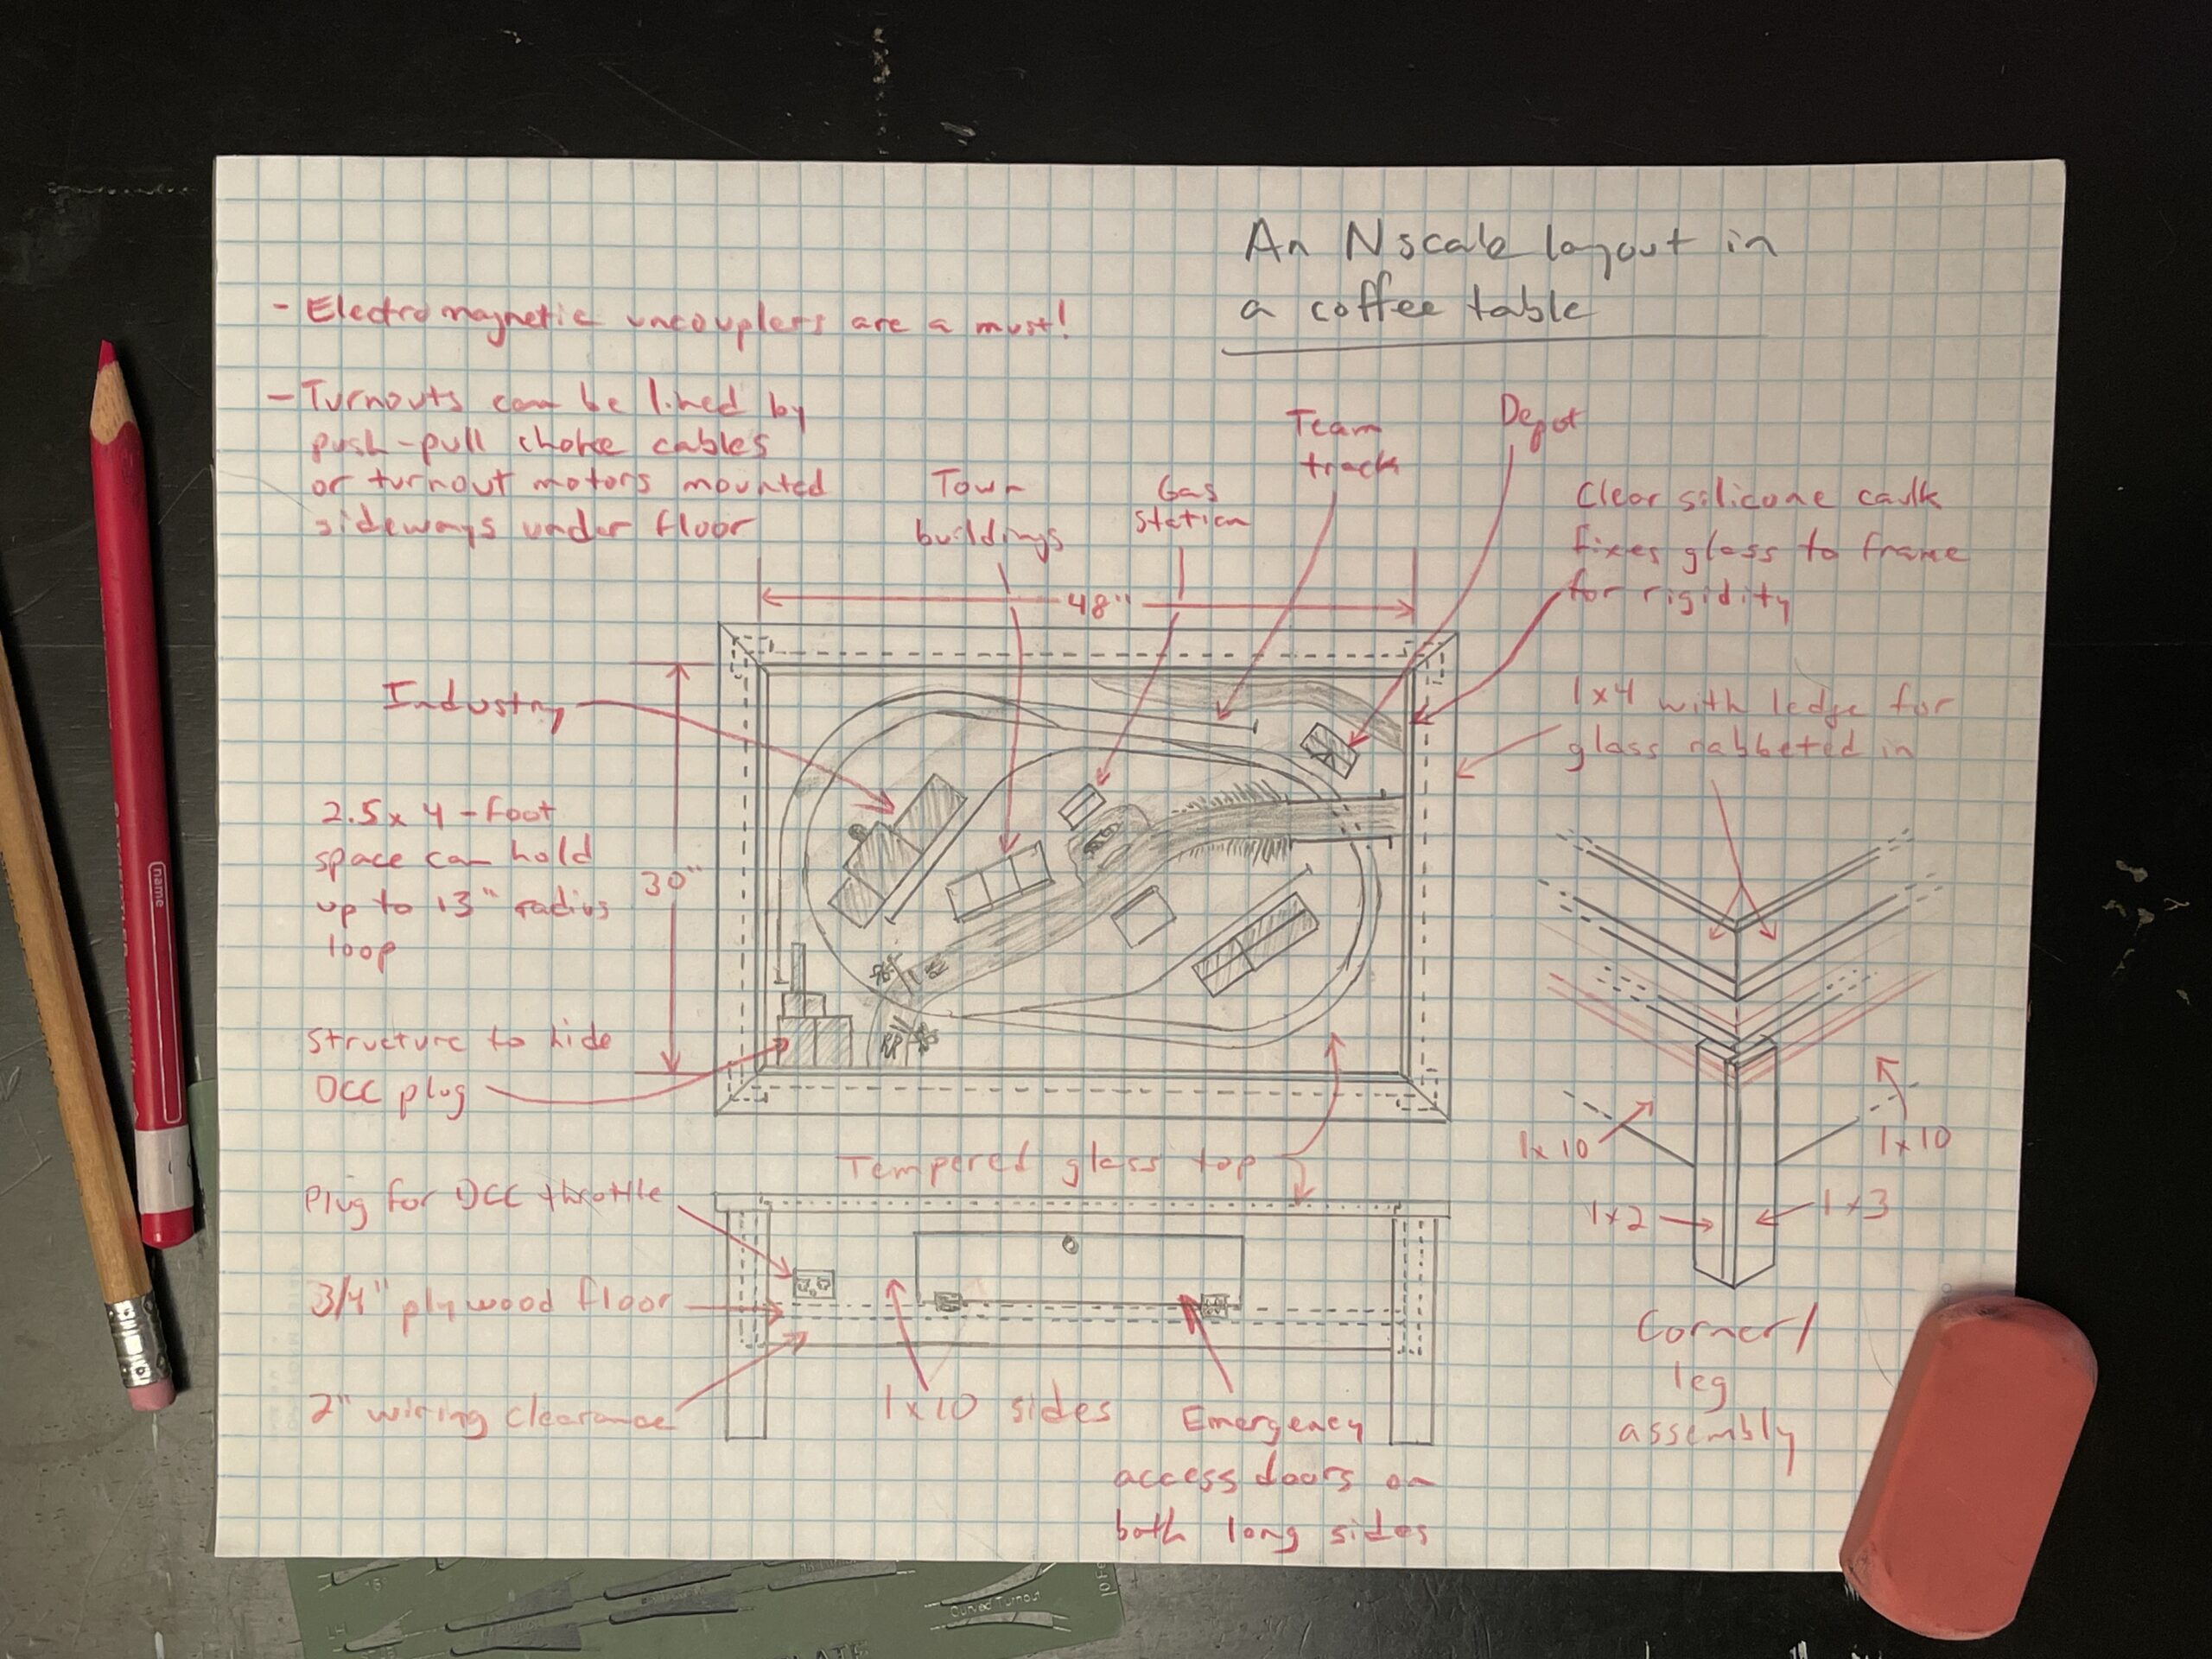 An N scale layout in
a coffee table
- Electromagnetic uncouplers are a must!
- Turnouts can be lined by
push-pull choke cables
or turnout motors mounted
sideways under floor
Town
buildings
Gas
station
Team
track
Depot
Clear silicone caulk
fixes glass to frame
for rigidity
48"
Industry
1x4 with ledge for
glass rabbeted in
2.5 x 4-foot
space can hold
up to 13" radius
loop
30"
Structure to hide
DCC plug
Tempered glass top
1x10
1x10
1x2
1x3
Plug for DCC throttle
3/4" plywood floor
2" wiring clearance
1x10 sides
Emergency
access doors on
both long sides
Corner/
leg
assembly
name
Curved Turnout